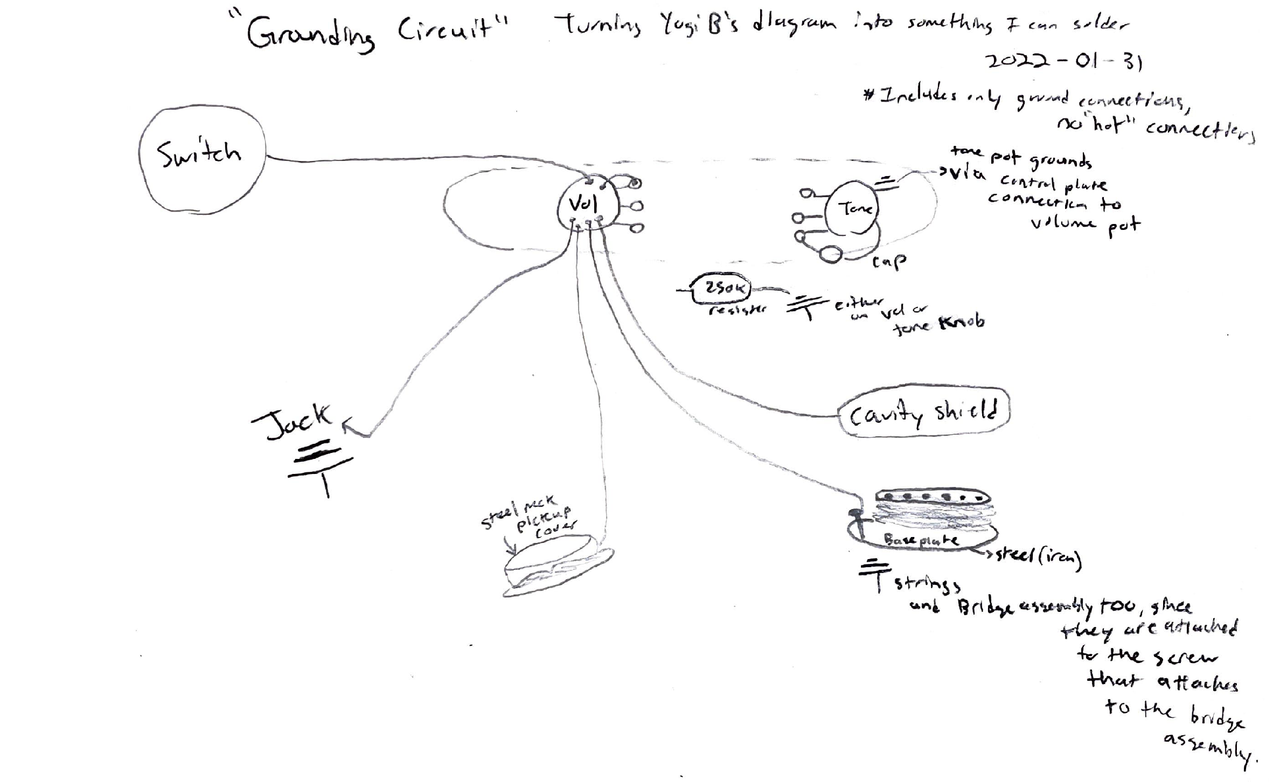 "Grounding Circuit" Turning Yogi B's diagram into something I can solder
2022-01-31
* Includes only ground connections,
no "hot" connections
Switch
Vol
Tone
tone pot grounds
via control plate
connection to
volume pot
cap
250K
resister
either
on vol or
tone knob
Jack
Cavity shield
steel neck
pickup
cover
Baseplate
steel (iron)
strings
and Bridge assembly too, since
they are attached
to the screw
that attaches
to the bridge
assembly.